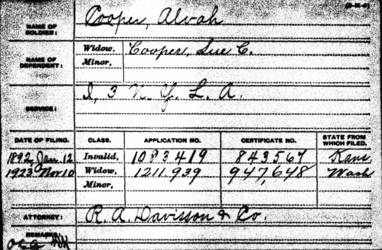 NAME OF SOLDIER: Cooper, Alvah
NAME OF DEPENDENT: Widow, Cooper, Sue C.
Minor,
SERVICE: I, 3 N. Y. L. A.
DATE OF FILING. CLASS. APPLICATION NO. CERTIFICATE NO. STATE FROM WHICH FILED.
1892, Jan. 12 Invalid, 1083419 843567 Kans
1923 Nov 10 Widow, 1211.939 947,648 Wash
Minor,
ATTORNEY: R. A. Davisson & Co.
REMARKS: